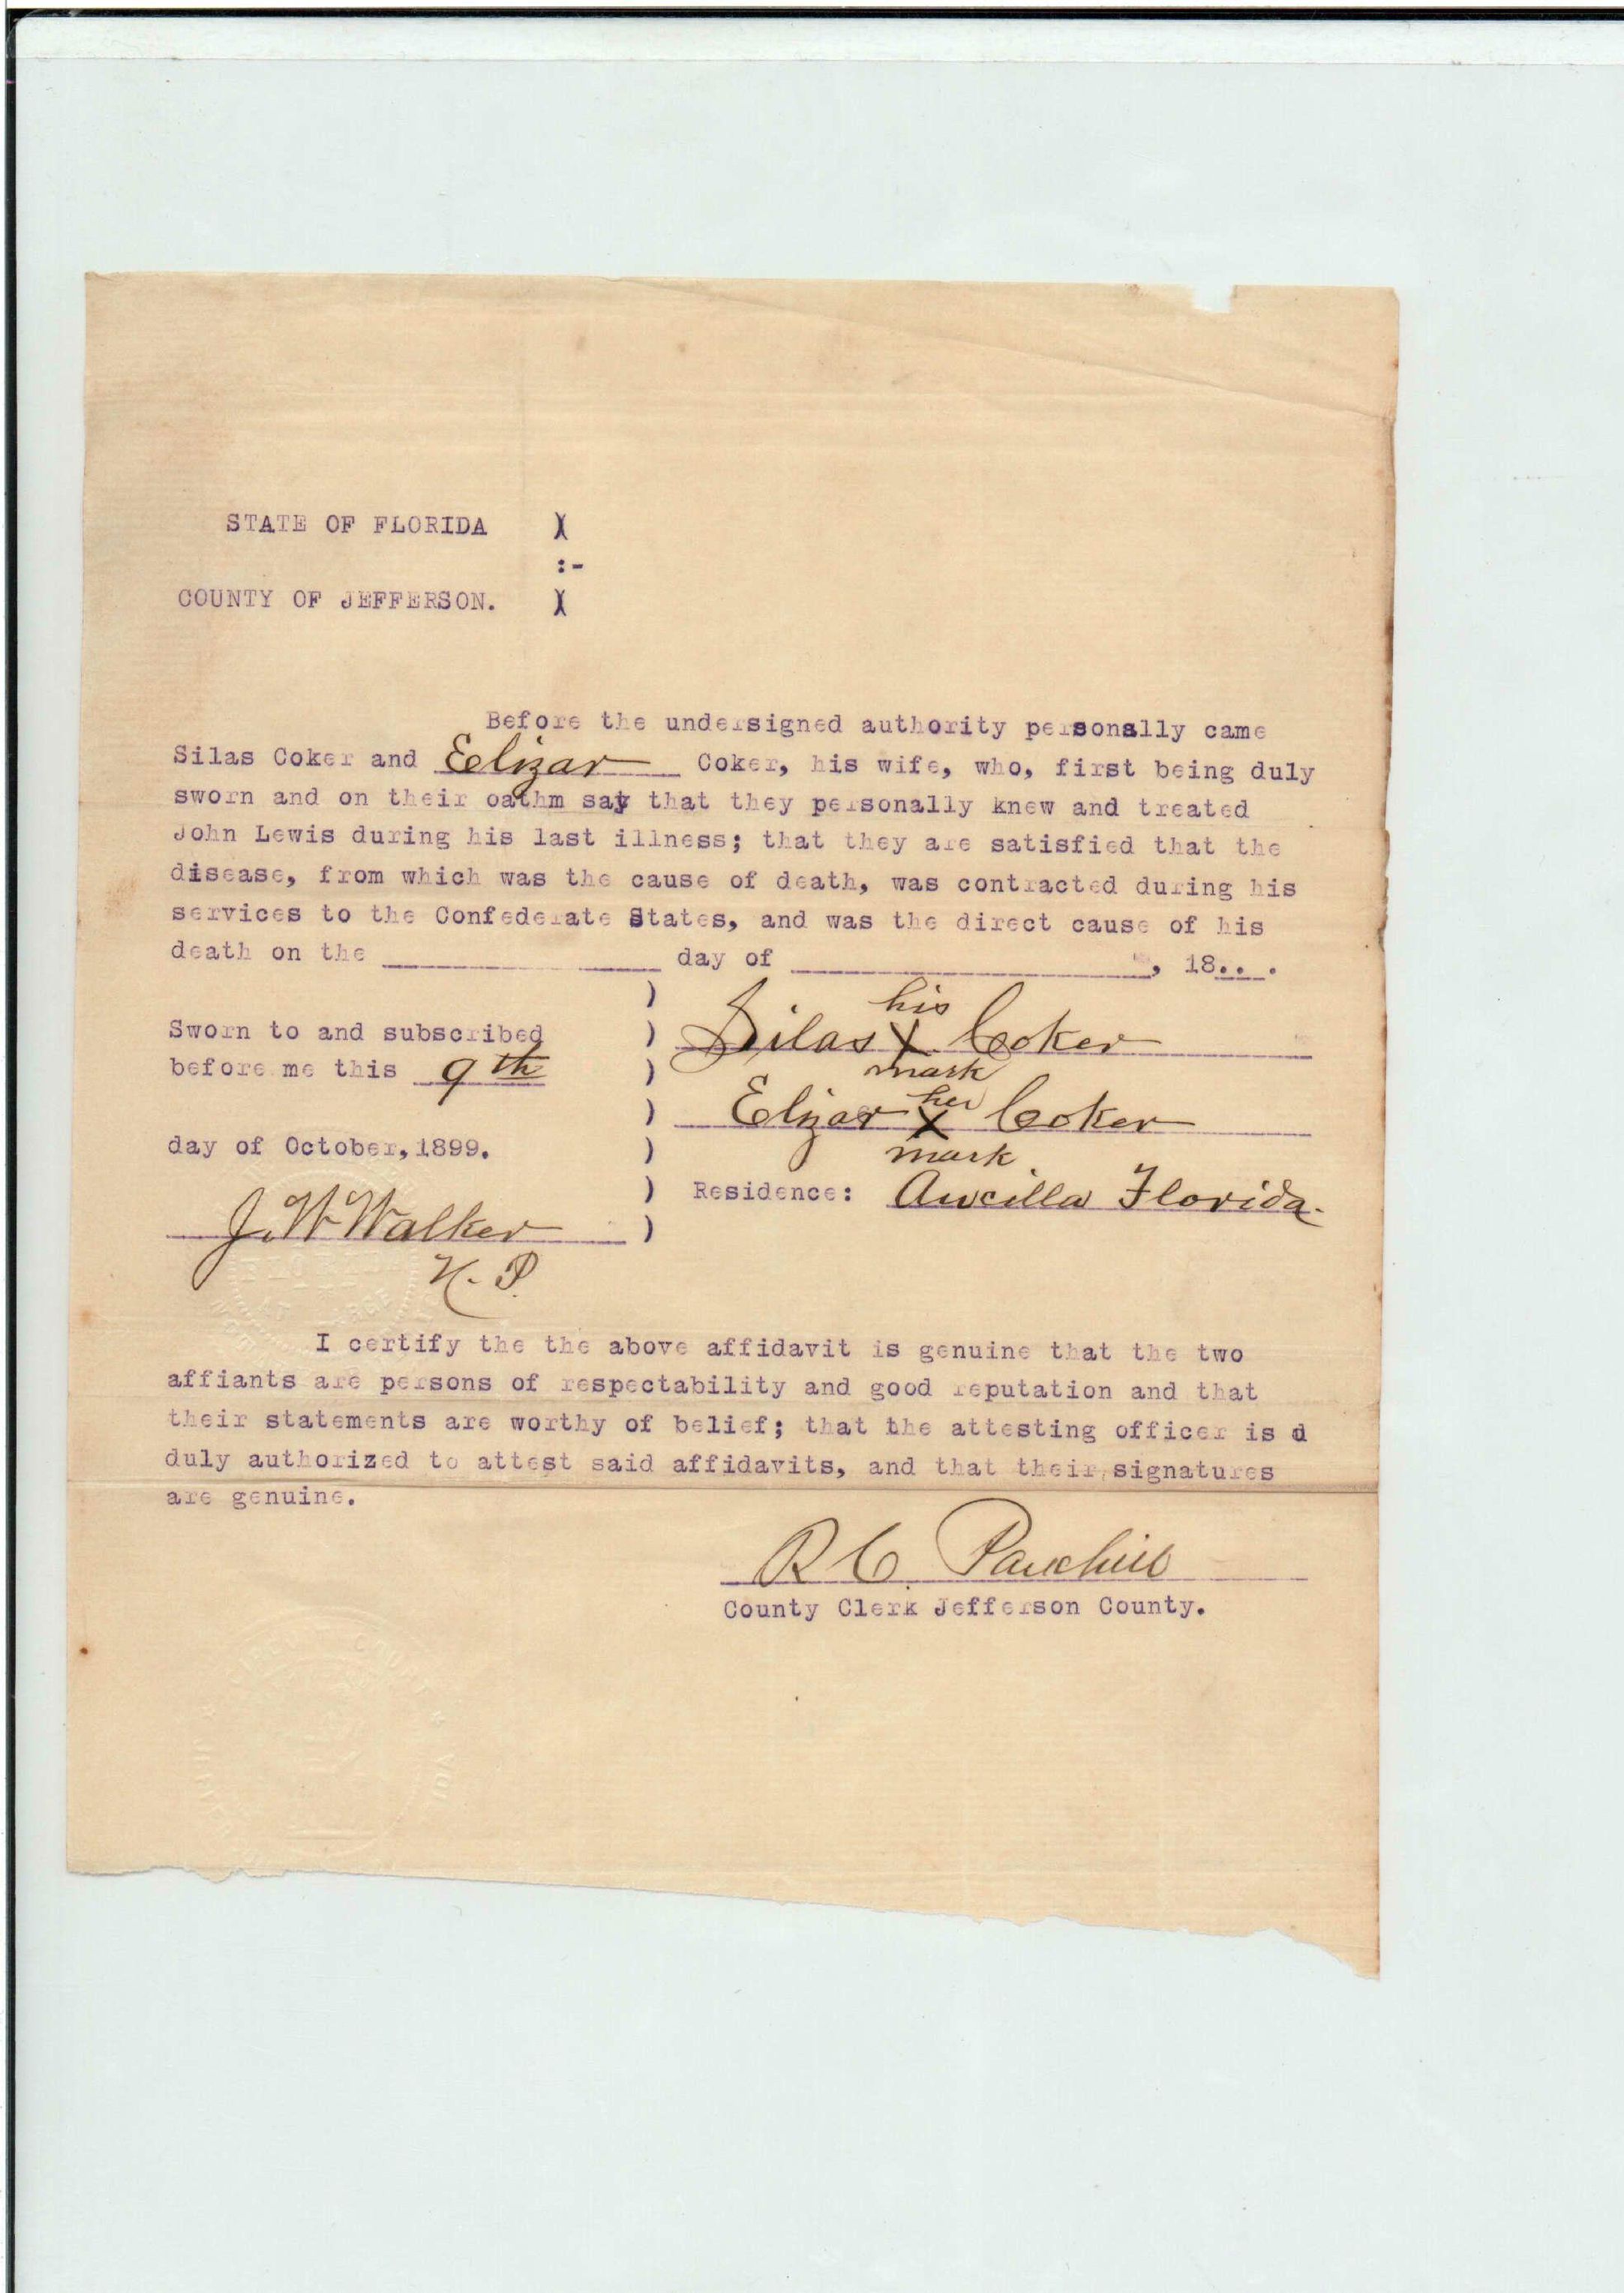 STATE OF FLORIDA )(
:-
COUNTY OF JEFFERSON. )(
Before the undersigned authority personally came
Silas Coker and Elizar Coker, his wife, who, first being duly
sworn and on their oathm say that they personally knew and treated
John Lewis during his last illness; that they are satisfied that the
disease, from which was the cause of death, was contracted during his
services to the Confederate States, and was the direct cause of his
death on the ____ day of ____, 18... .
his
Silas X Coker
mark
Sworn to and subscribed
before me this 9th
her
Elizar X Coker
mark
day of October, 1899.
Residence: Aucilla Florida.
J. W Walker
N. P.
I certify the the above affidavit is genuine that the two
affiants are persons of respectability and good reputation and that
their statements are worthy of belief; that the attesting officer is d
duly authorized to attest said affidavits, and that their signatures
are genuine.
R C.
County Clerk Jefferson County.